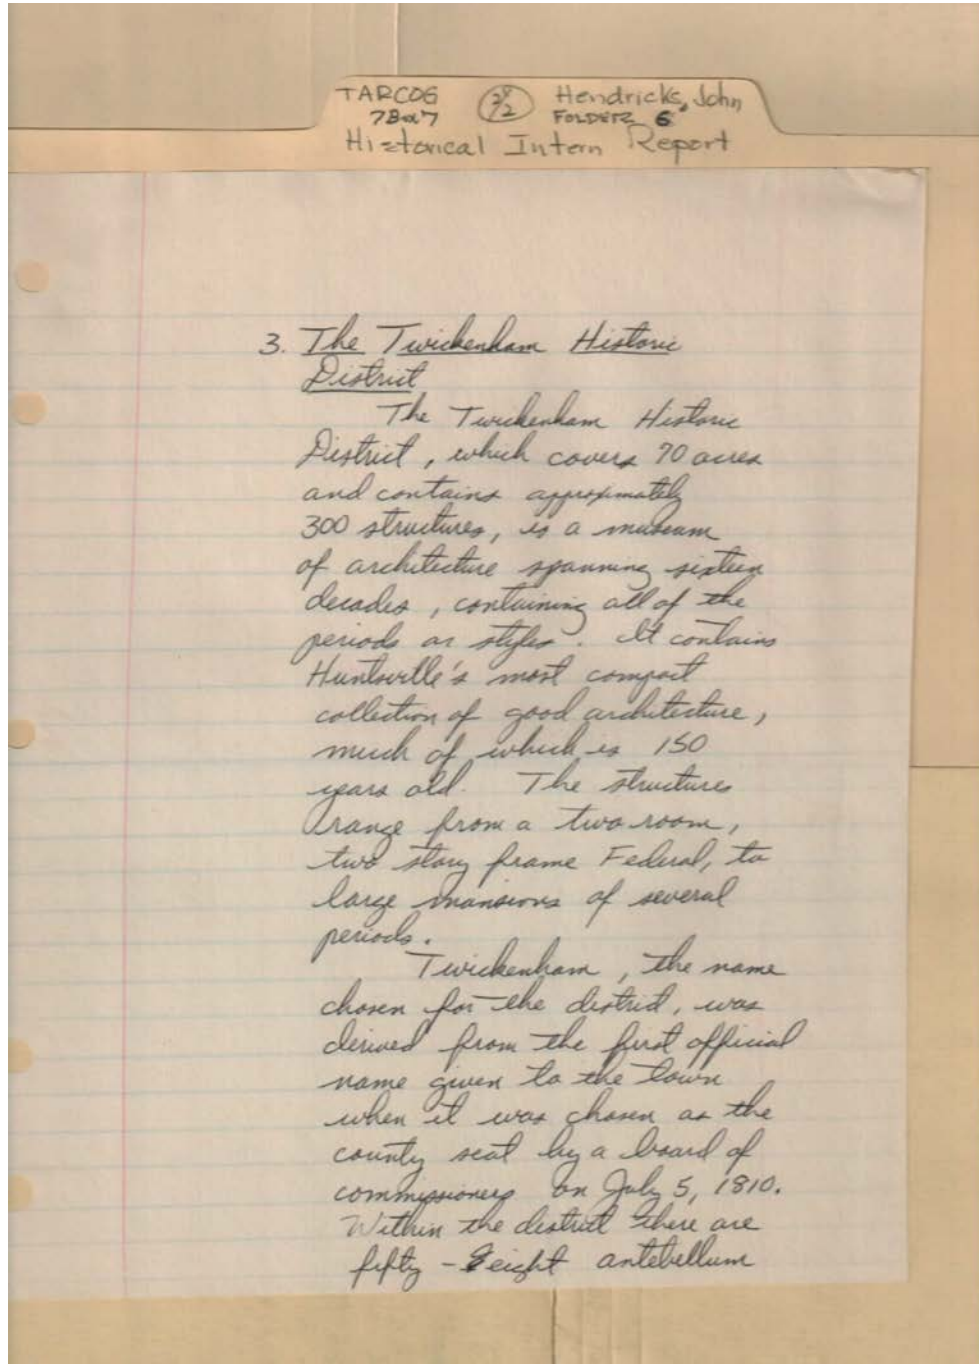 TARCOG
7B07
2/2
Hendricks, John
FOLDER 6
Historical Intern Report
3. The Twickenham Historic
District
The Twickenham Historic
District, which covers 70 acres
and contains approximately
300 structures, is a museum
of architecture spanning sixteen
decades, containing all of the
periods or styles. It contains
Huntsville's most compact
collection of good architecture,
much of which is 150
years old. The structures
range from a two room,
two story frame Federal, to
large mansions of several
periods.
Twickenham, the name
chosen for the district, was
derived from the first official
name given to the town
when it was chosen as the
county seat by a board of
commissioners on July 5, 1810.
Within the district there are
fifty-eight antebellum